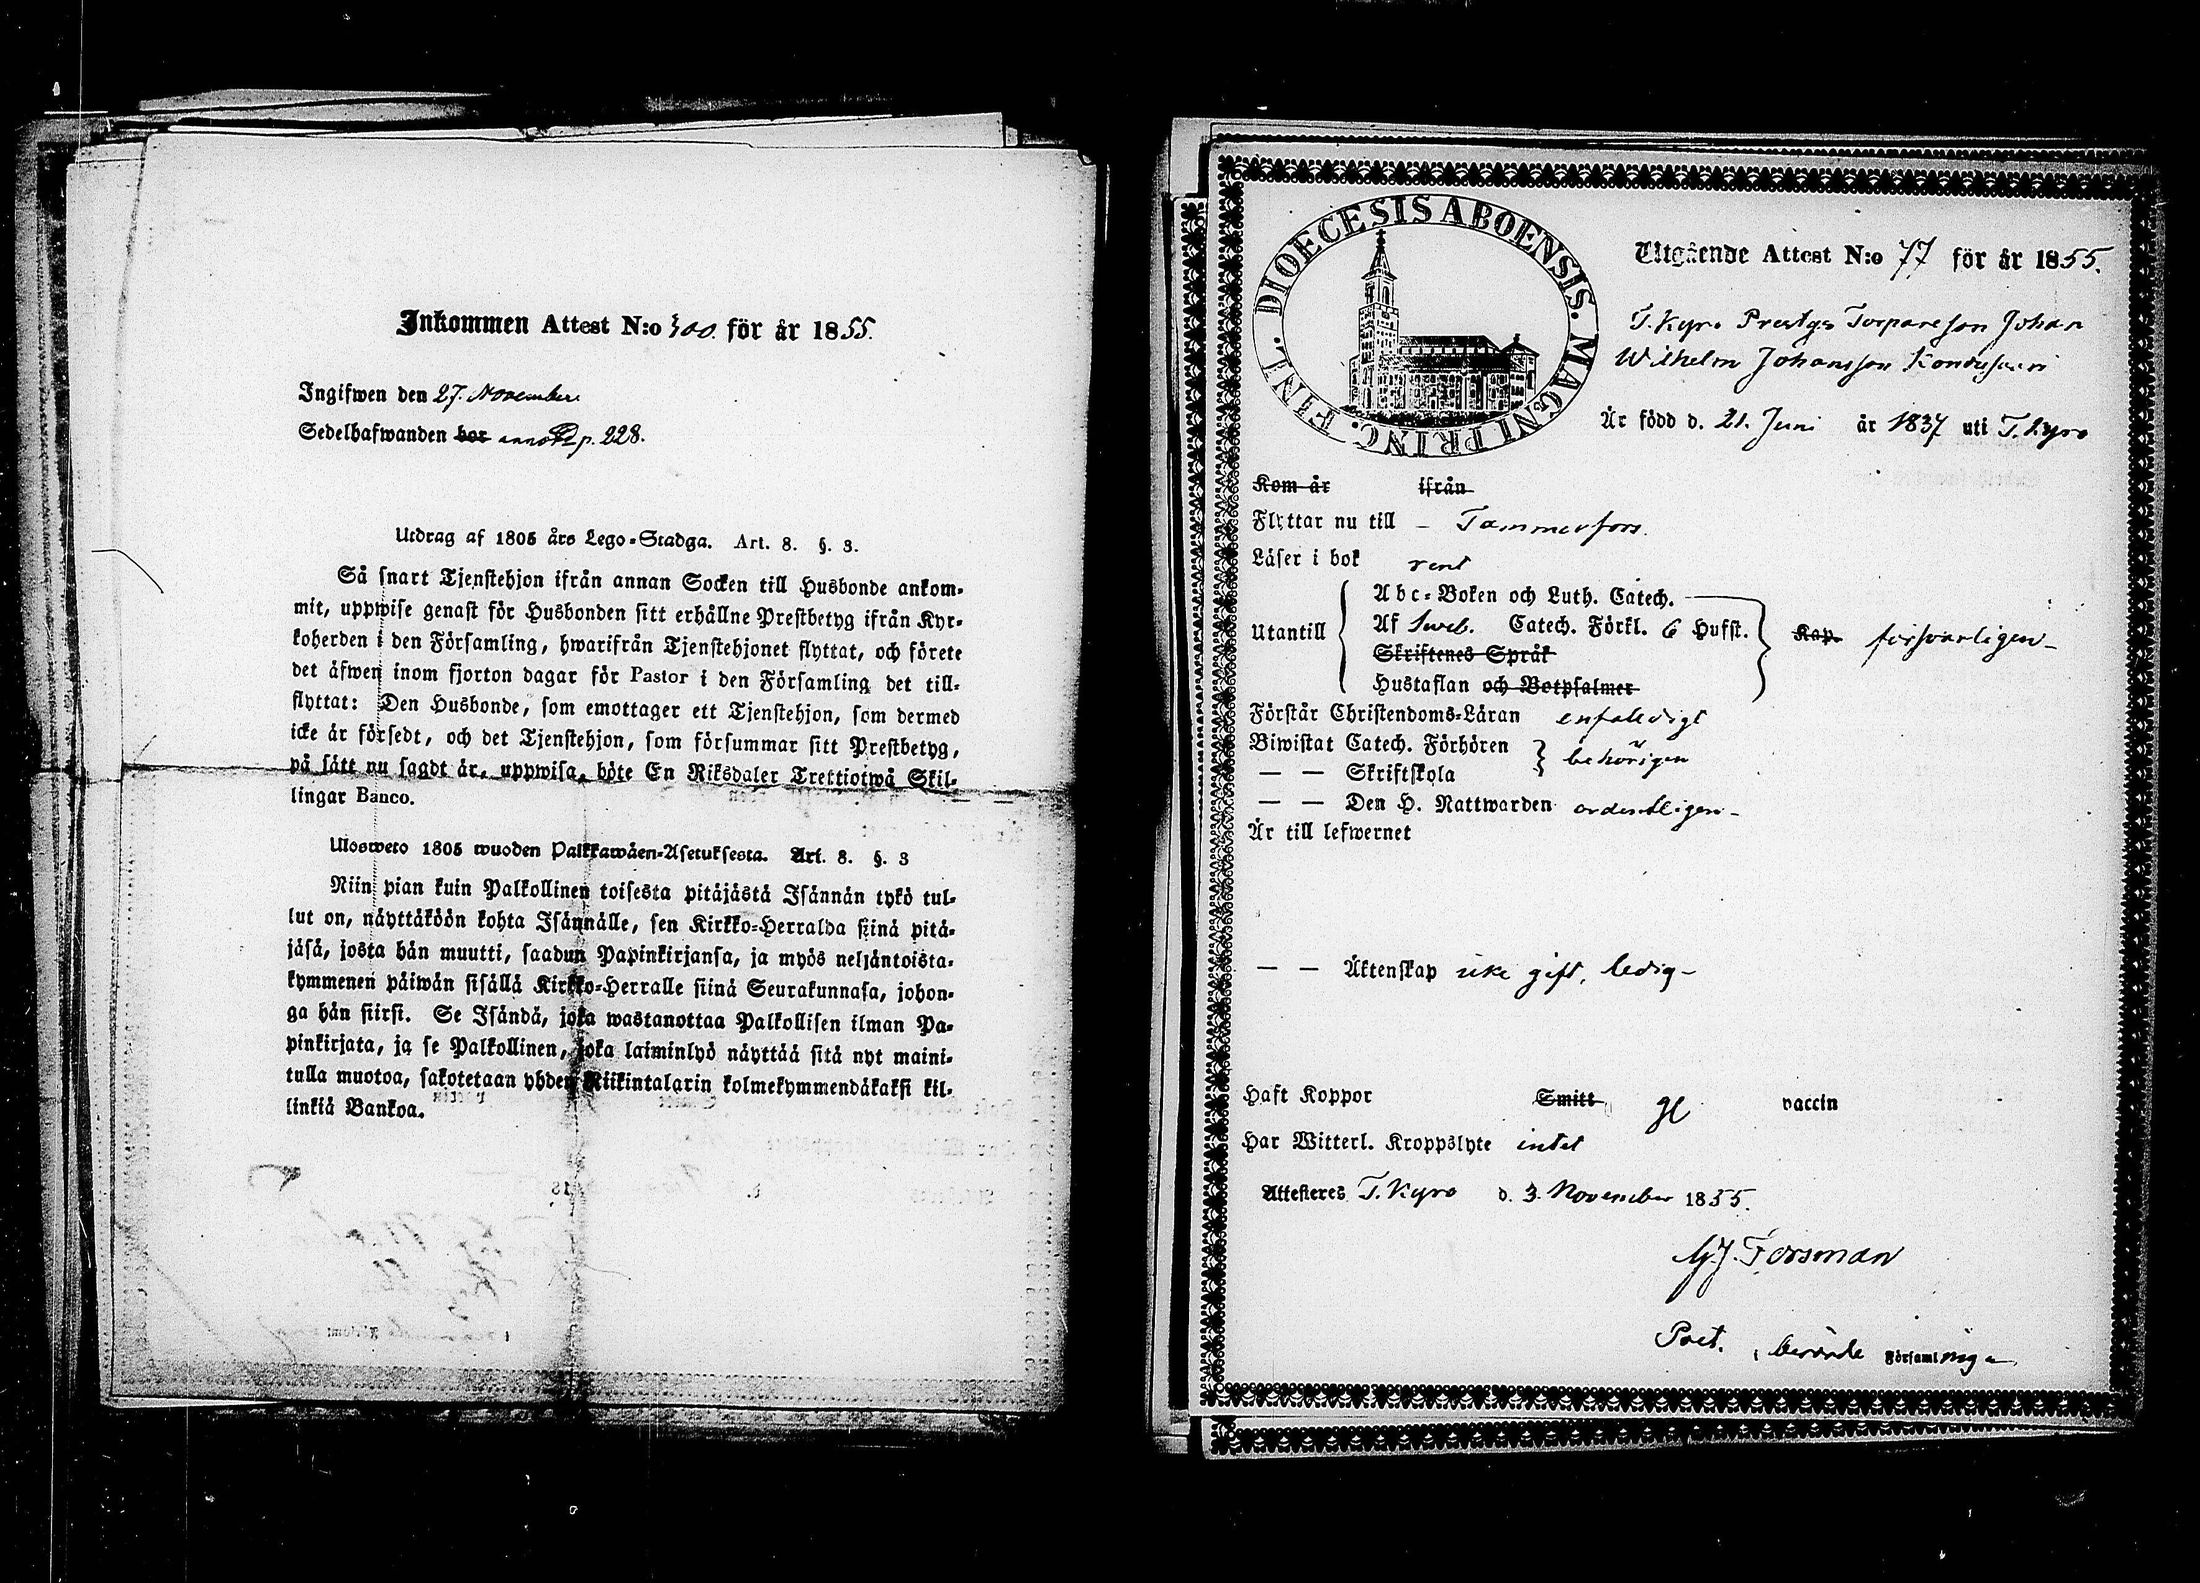 Inkommen Attest N:o 300. för år 1855.
Ingifwen den 27. November
Sedelhafwanden bor p. 228.
Utdrag af 1805 års Lego-Stadga. Art. 8. §. 3.
Så snart Tjenstehjon ifrån annan Socken till Husbonde ankom-
mit, uppwise genast för Husbonden sitt erhållne Prestbetyg ifrån Kyr-
koherden i den Församling, hwarifrån Tjenstehjonet flyttat, och förete
det äfwen inom fjorton dagar för Pastor i den Församling det till-
flyttat: Den Husbonde, som emottager ett Tjenstehjon, som dermed
icke är försedt, och det Tjenstehjon, som försummar sitt Prestbetyg,
på sätt nu sagdt är, uppwisa, böte En Riksdaler Trettiotwå Skil-
lingar Banco.
Ulosweto 1805 wuoden Palkkawäen-Asetuksesta. Art. 8. §. 3
Niin pian kuin Palkollinen toisesta pitäjästä Isännän tykö tul-
lut on, näyttäköön kohta Isännälle, sen Kirkko-Herralda siinä pitä-
jäsä, josta hän muutti, saadun Papinkirjansa, ja myös neljäntoista-
kymmenen päiwän sisällä Kirkko-Herralle siinä Seurakunnasa, johon-
ga hän siirsi. Se Isändä, joka wastanottaa Palkollisen ilman Pa-
pinkirjata, ja se Palkollinen, joka laiminlyö näyttää sitä nyt maini-
tulla muotoa, sakotetaan yhden Riikintalarin kolmekymmendäkaksi kil-
linkiä Bankoa.
DIOECESIS ABOENSIS. MAGNI PRINC. FINL.
Utgående Attest N:o 77 för år 1855.
T. Kyro Prestgs Torpareson Johan
Wilhelm Johansson
Är född d. 21. Juni år 1837 uti T. Kyro
Kom år ifrån
Flyttar nu till – Tammerfors.
Läser i bok rent
Utantill
Abc-Boken och Luth. Catech.
Af Sveb. Catech. Förkl. 6 Hufst. Kap. försvarligen –
Skriftenes Språk
Hustaflan och Botpsalmer
Förstår Christendoms-Läran enfaledigt
Biwistat Catech. Förhören behörigen
— — Skriftskola
— — Den H. Nattwarden ordentligen –
Är till lefwernet
— — Äktenskap icke gift, ledig –
Haft Koppor Smitt gl vaccin
Har Witterl. Kroppslyte intet
Attesteres T. Kyro d. 3. November 1855.
G. J. Forsman
Past. i berörde Församlinga